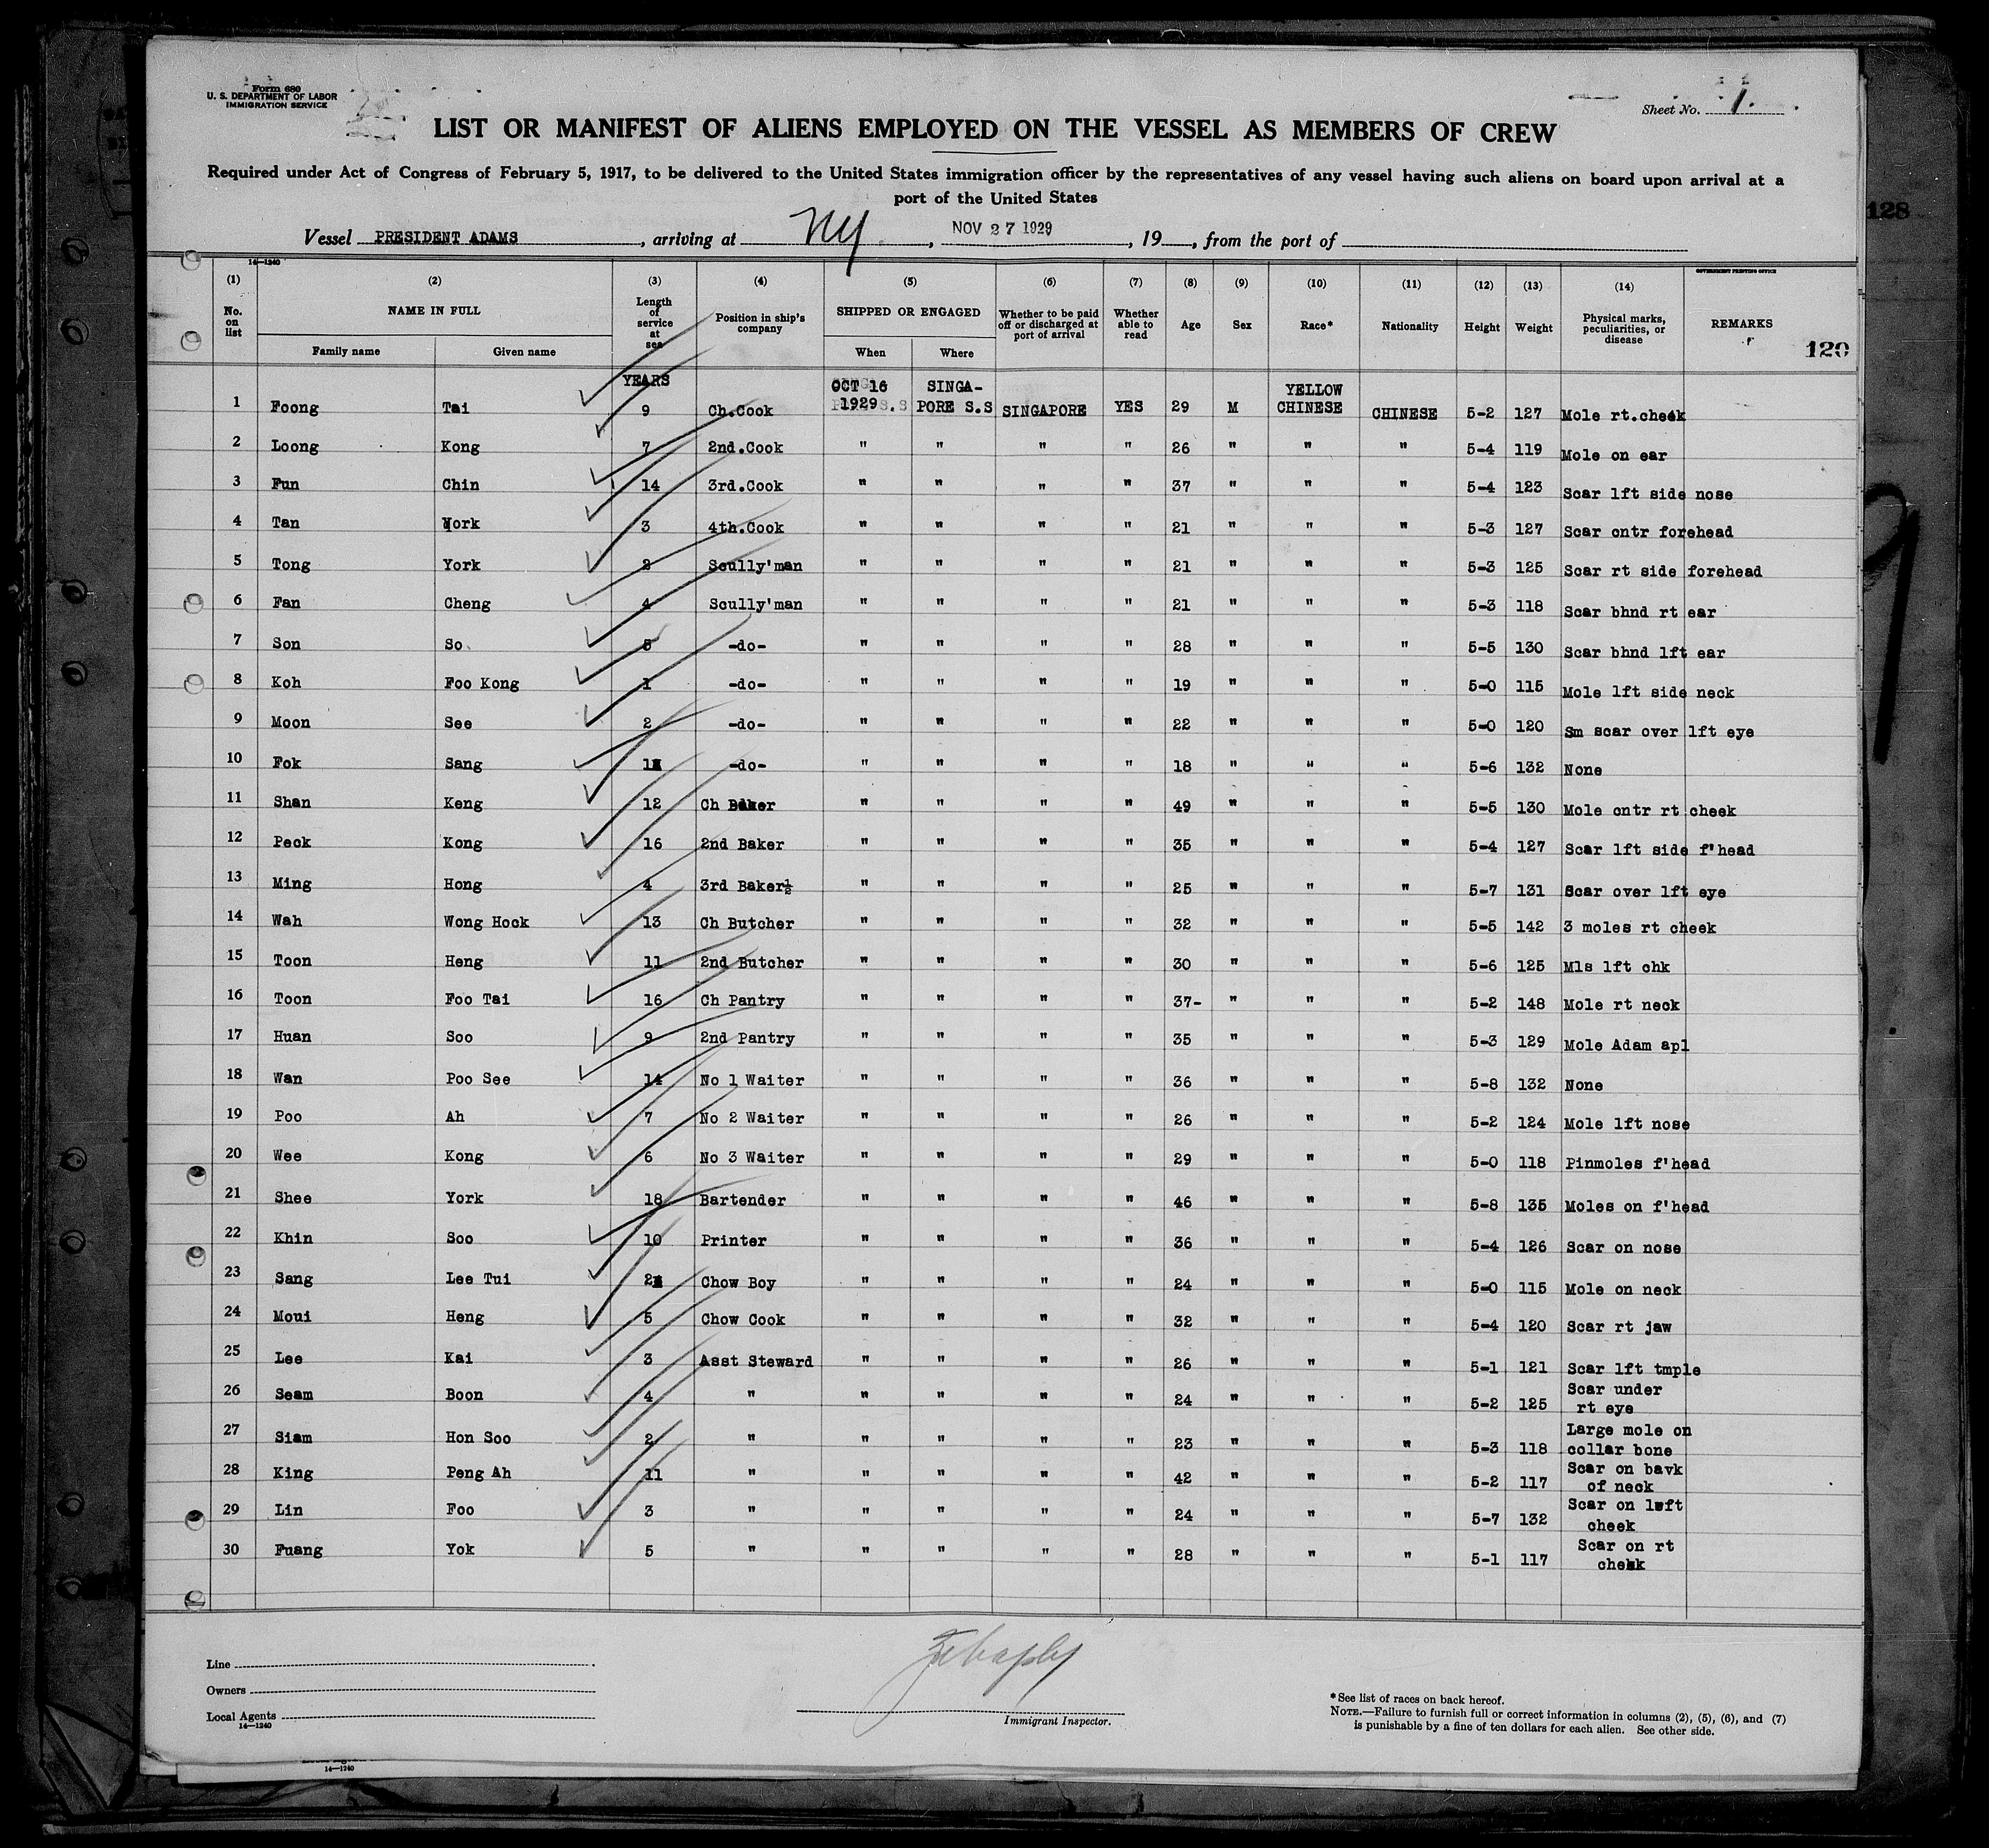 Form 680
U. S. DEPARTMENT OF LABOR
IMMIGRATION SERVICE
Sheet No. 1.
LIST OR MANIFEST OF ALIENS EMPLOYED ON THE VESSEL AS MEMBERS OF CREW
Required under Act of Congress of February 5, 1917, to be delivered to the United States immigration officer by the representatives of any vessel having such aliens on board upon arrival at a
port of the United States
128
Vessel PRESIDENT ADAMS, arriving at NY, NOV 27 1929, 19, from the port of
14—1240
GOVERNMENT PRINTING OFFICE
(1) (2) (3) (4) (5) (6) (7) (8) (9) (10) (11) (12) (13) (14)
No. on list NAME IN FULL Family name Given name Length of service at sea Position in ship's company SHIPPED OR ENGAGED When Where Whether to be paid off or discharged at port of arrival Whether able to read Age Sex Race* Nationality Height Weight Physical marks, peculiarities, or disease REMARKS
120
YEARS OCT 16 SINGA- YELLOW
1 Foong Tai 9 Ch.Cook 1929 PORE S.S SINGAPORE YES 29 M CHINESE CHINESE 5-2 127 Mole rt.cheek
2 Loong Kong 7 2nd.Cook " " " " 26 " " " 5-4 119 Mole on ear
3 Fun Chin 14 3rd.Cook " " " " 37 " " " 5-4 123 Scar lft side nose
4 Tan York 3 4th.Cook " " " " 21 " " " 5-3 127 Scar cntr forehead
5 Tong York 2 Scully'man " " " " 21 " " " 5-3 125 Scar rt side forehead
6 Fan Cheng 4 Scully'man " " " " 21 " " " 5-3 118 Scar bhnd rt ear
7 Son So 5 -do- " " " " 28 " " " 5-5 130 Scar bhnd lft ear
8 Koh Foo Kong 1 -do- " " " " 19 " " " 5-0 115 Mole lft side neck
9 Moon See 2 -do- " " " " 22 " " " 5-0 120 Sm scar over lft eye
10 Fok Sang 1 -do- " " " " 18 " " " 5-6 132 None
11 Shan Keng 12 Ch Baker " " " " 49 " " " 5-5 130 Mole cntr rt cheek
12 Peck Kong 16 2nd Baker " " " " 35 " " " 5-4 127 Scar lft side f'head
13 Ming Hong 4 3rd Baker½ " " " " 25 " " " 5-7 131 Scar over lft eye
14 Wah Wong Hock 13 Ch Butcher " " " " 32 " " " 5-5 142 3 moles rt cheek
15 Toon Heng 11 2nd Butcher " " " " 30 " " " 5-6 125 Mls lft chk
16 Toon Foo Tai 16 Ch Pantry " " " " 37- " " " 5-2 148 Mole rt neck
17 Huan Soo 9 2nd Pantry " " " " 35 " " " 5-3 129 Mole Adam apl
18 Wan Poo See 14 No 1 Waiter " " " " 36 " " " 5-8 132 None
19 Poo Ah 7 No 2 Waiter " " " " 26 " " " 5-2 124 Mole lft nose
20 Wee Kong 6 No 3 Waiter " " " " 29 " " " 5-0 118 Pinmoles f'head
21 Shee York 18 Bartender " " " " 46 " " " 5-8 135 Moles on f'head
22 Khin Soo 10 Printer " " " " 36 " " " 5-4 126 Scar on nose
23 Sang Lee Tui 2 Chow Boy " " " " 24 " " " 5-0 115 Mole on neck
24 Moui Heng 5 Chow Cook " " " " 32 " " " 5-4 120 Scar rt jaw
25 Lee Kai 3 Asst Steward " " " " 26 " " " 5-1 121 Scar lft tmple
26 Seam Boon 4 " " " " " 24 " " " 5-2 125 Scar under rt eye
27 Siam Hon Soo 2 " " " " " 23 " " " 5-3 118 Large mole on collar bone
28 King Peng Ah 11 " " " " " 42 " " " 5-2 117 Scar on bavk of neck
29 Lin Foo 3 " " " " " 24 " " " 5-7 132 Scar on left cheek
30 Fuang Yok 5 " " " " " 28 " " " 5-1 117 Scar on rt cheek
Line
Owners
Local Agents
14—1240
Immigrant Inspector.
*See list of races on back hereof.
NOTE.—Failure to furnish full or correct information in columns (2), (5), (6), and (7)
is punishable by a fine of ten dollars for each alien. See other side.
14—1240